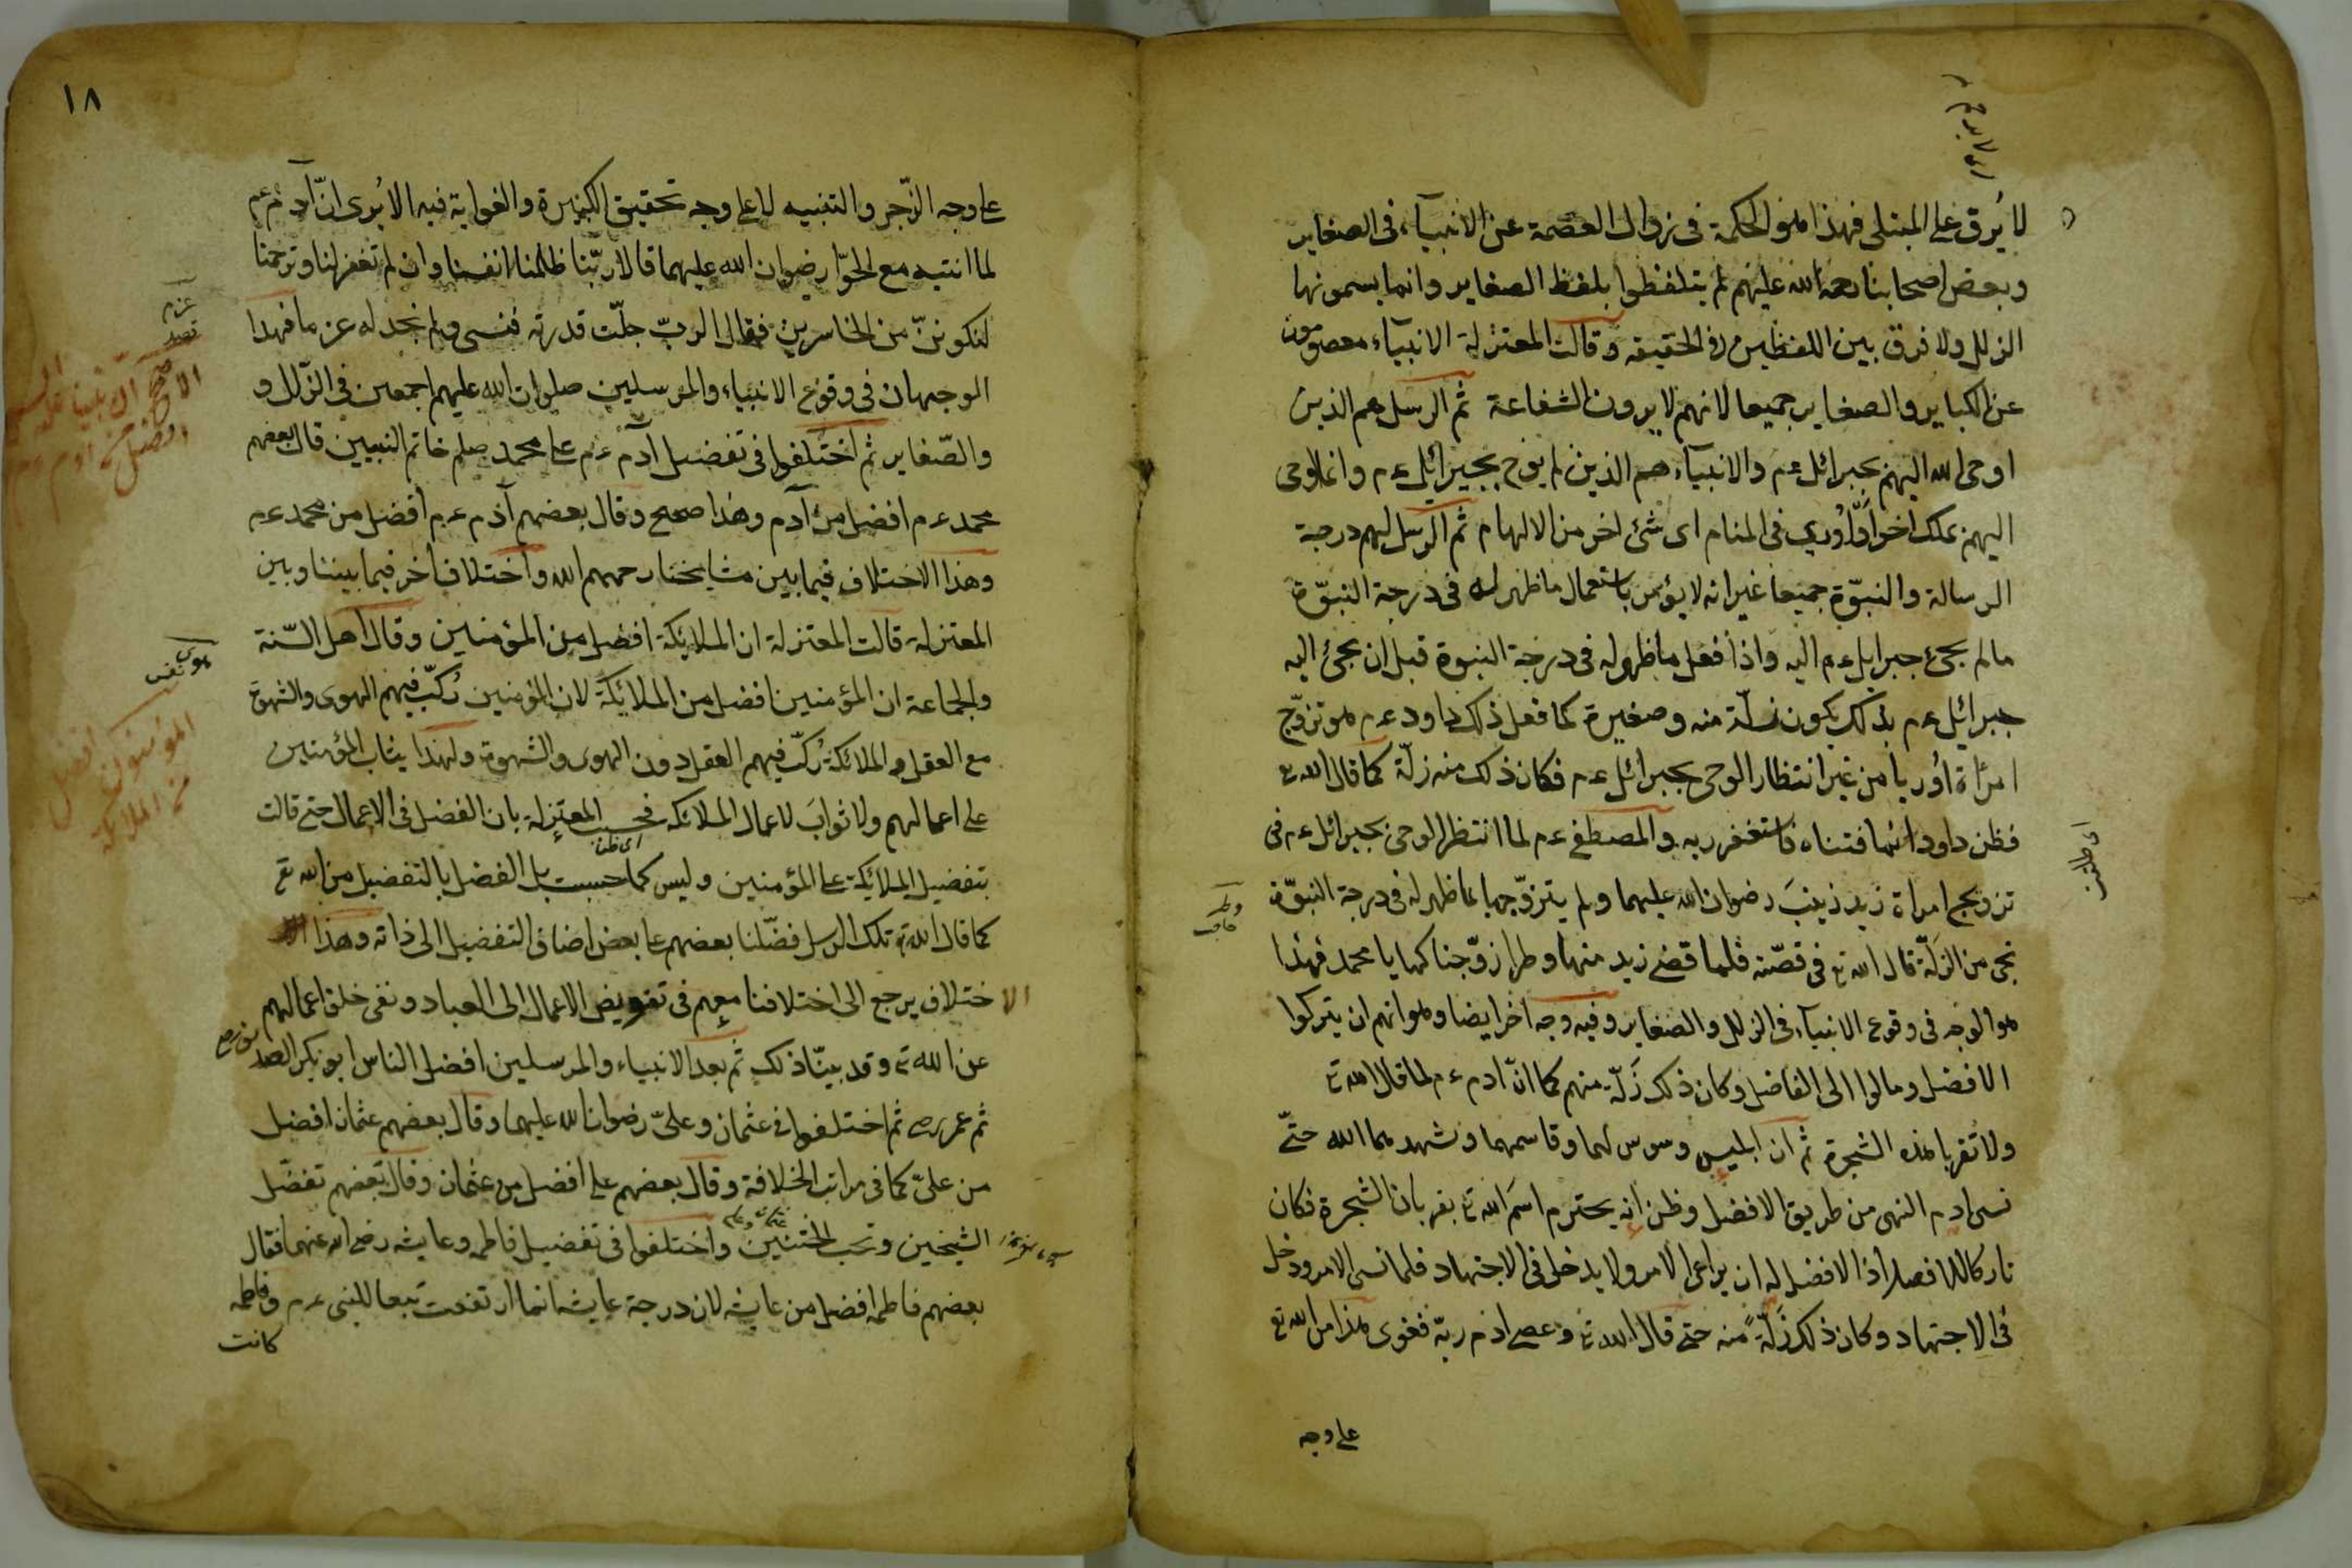 لا يُرق على المبتلى فهذا هو الحكمة فى زوال العصمة عن الانبيآء فى الصغاير
وبعض اصحابنا رحمة الله عليهم لم يتلفظوا بلفظ الصغاير وانما يسمونها
الزلل ولا فرق بين اللفظين فى الحقيقه وقالت المعتزلة الانبيآء معصومون
عن الكباير والصغاير جميعا لانهم لا يرون الشفاعة ثم الرسل هم الذين
اوحى الله اليهم بجبرائل ءم والانبيآء هم الذين لم يوح بجبرائل ءم وانما اوحى
اليهم بملك اخر او رأوى فى المنام اى شئ اخر من الالهام ثم الرسل لهم درجة
الرسالة والنبوّة جميعا غير انه لا يؤمر باستعمال ما ظهر له فى درجة النبوّة
مالم يجئ جبرايل ءم اليه واذا فعل ما ظهر له فى درجة النبوة قبل ان يجئ اليه
جبرائيل ءم بذلك يكون زلّة منه وصغيرة كما فعل ذلك داود ءم هو تزوّج
امرأة اوريا من غير انتظار الوحى بجبرائل ءم فكان ذلك منه زلّة كما قال الله تع
فظن داود انما فتناه فاستغفر ربه والمصطفى ءم لما انتظر الوحى بجبرائل ءم فى
تزويج امراة زيد زينبَ رضوان الله عليهما ولم يتزوّجها بما ظهر له فى درجة النبوّة
نجى من الزلّة قال الله تع فى قصّته فلما قضى زيد منها وطرا زوّجناكها يا محمد فهذا
هو الوجه فى وقوع الانبيآء فى الزلل والصغاير وفيه وجه اخر ايضا وهو انهم ان يتركوا
الافضل ومالوا الى الفاضل وكان ذلك زَلّة منهم كما انّ ادم ءم لما قال الله تع
ولا تقربا هذه الشجرة ثم ان ابليس وسوس لهما وقاسمهما وشهد بهما الله حتّى
نسى ادم النهى من طريق الافضل وظن انه يحترم اسمَ الله تع بقربان الشجرة فكان
تاركا للافصل اذ الافضل له ان يراعى الامر ولا يدخل فى الاجتهاد فلما نسى الامر ودخل
فى الاجتهاد وكان ذلك زَلّةً منه حتى قال الله تع وعصى ادم ربّه فغوى هذا من الله تع
على وجه
اى ظلمت
وطر
حاجت
١٨
على وجه الزّجر والتنبيه لا على وجه تحقيق الكبيرة والغواية فيه الا يُرى انّ آدم ءم
لما انتبه مع الحوّا رضوان الله عليهما قالا ربّنا ظلمنا انفسنا وان لم تغفر لنا وترحمنا
لنكوننّ من الخاسرين فقال الربّ جلّت قدرته فنسى ولم نجد له عزما فهذا
الوجهان فى وقوع الانبياء والمرسلين صلوات الله عليهم اجمعين فى الزّلل و
والصّغاير ثم اختلفوا فى تفضيل آدم ءم على محمد صلعم خاتم النبيين قال بعضهم
محمد ءم افضل من آدم وهذا صحيح وقال بعضهم آدم ءم افضل من محمد ءم
وهذا الاختلاف فيما بين مشايخنا رحمهم الله واختلاف اخر فيما بيننا وبين
المعتزلة قالت المعتزلة ان الملايكة افضل من المؤمنين وقال اهل السّنة
والجماعة ان المؤمنين افضل من الملائكة لان المؤمنين رُكّب فيهم الهوى والشهوة
مع العقل والملائكة رُكّب فيهم العقل دون الهوى والشهوة ولهذا يثاب المؤمنين
على اعمالهم ولا ثوابَ لاعمال الملائكه فحسبت المعتزلة بان الفضل فى الاعمال حتى قالت
اى ظن
بتفضيل الملائكة على المؤمنين وليس كما حسبت بل الفضل بالتفضيل من الله تع
كما قال الله تع تلك الرسل فضّلنا بعضهم على بعض اضاف التفضيل الى ذاته وهذا
الاختلاف يرجع الى اختلافنا معهم فى تفويض الاعمال الى العباد ونفى خلق اعمالهم
عن الله تع وقد بيّنّا ذلك ثم بعد الانبياء والمرسلين افضل الناس ابو بكر الصديق رض
ثم عمر رض ثم اختلفوا فى عثمان وعلىّ رضوان الله عليهما وقال بعضهم عثمان افضل
من علىّ كما فى مراتب الخلافة وقال بعضهم على افضل من عثمان وقال بعضهم تفضّل
الشيخين وتحب الختنين واختلفوا فى تفضيل فاطمه وعايشه رضى الله عنهما فقال
بعضهم فاطمه افضل من عايشه لان درجة عايشه انما ارتفعت تبعا للنبى ءم وفاطمه
كانت
عزم
قصد
هوى
المؤمنون افضل
من الملايكة